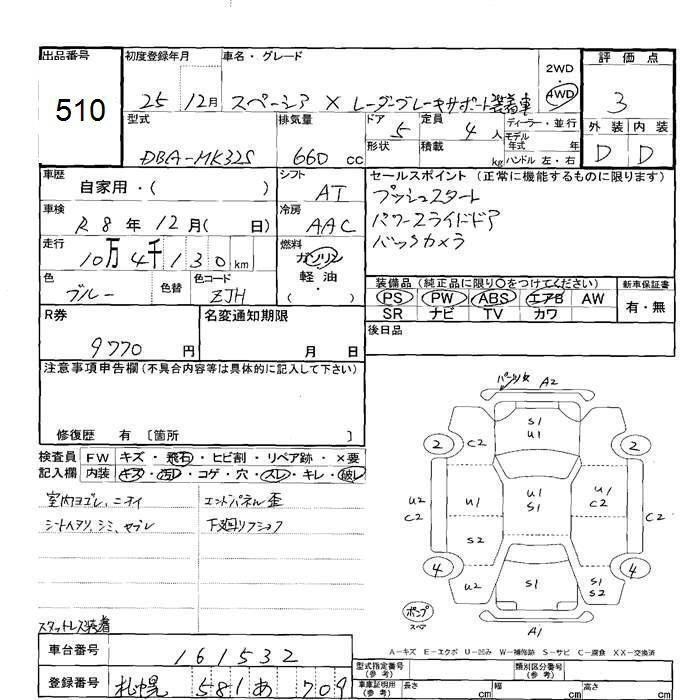 出品番号 初度登録年月 車名・グレード 2WD・4WD 評価点
510 25 12月 スペーシア X レーダーブレーキサポート装着車 3
型式 排気量 ドア 5 定員 4人 ディーラー・並行 外装 内装
DBA-MK32S 660 cc 形状 積載 kg モデル年式 年式 ハンドル 左・右 D D
車歴 自家用・( ) シフト AT セールスポイント (正常に機能するものに限ります)
車検 R8年12月( 日) 冷房 AAC プッシュスタート
パワースライドドア
走行 10万4千130km 燃料 ガソリン・軽油・( ) バックカメラ
色 ブルー 色替 色コード ZJH 装備品 (純正品に限り○をつけてください) 新車保証書
PS PW ABS エアB AW 有・無
R券 名変通知期限 SR ナビ TV カワ
9770円 月 日 後日品
注意事項申告欄 (不具合内容等は具体的に記入して下さい)
修復歴 有 〔箇所 〕
検査員 FW キズ・飛石・ヒビ割・リペア跡・×要
記入欄 内装 キズ・汚れ・コゲ・穴・スレ・キレ・破レ
室内ヨゴレ、ニオイ エンドパネル歪
シートヘタリ、シミ、ヤブレ 下廻りサビ
スタットレス装着
A2
S1
U1
2 C2 2
U2 C2 U1 U1 S1 U1 C2 C2
S2
4 U2 S1 S1 S2 4
ポンプ
A1
A-キズ E-エクボ U-凹み W-補修跡 S-サビ C-腐食 XX-交換済
車台番号 161532 型式指定番号(参考) 類別区分番号(参考)
登録番号 札幌 581 あ 709 車庫証明用(参考) 長さ cm 幅 cm 高さ cm